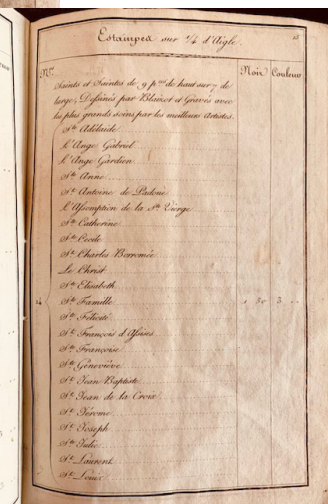 Estampes sur 1/4 d'Aigle.
Nos. Noir Couleur
Saints et Saintes de 9 pces de haut sur 7 de
large, Dessinés par Blaizot et Gravés avec
les plus grands soins par les meilleurs Artistes.
Ste Adélaïde
L'Ange Gabriel
L'Ange Gardien
Ste Anne
St Antoine de Padoue
L'Assomption de la Ste Vierge
Ste Catherine
Ste Cécile
St Charles Borromée
Le Christ
Ste Elisabeth
Ste Famille 1 50 3
Ste Félicité
St François d'Assises
Ste Françoise
Ste Géneviève
St Jean Baptiste
St Jean de la Croix
St Jérome
St Joseph
Ste Julie
St Laurent
St Louis